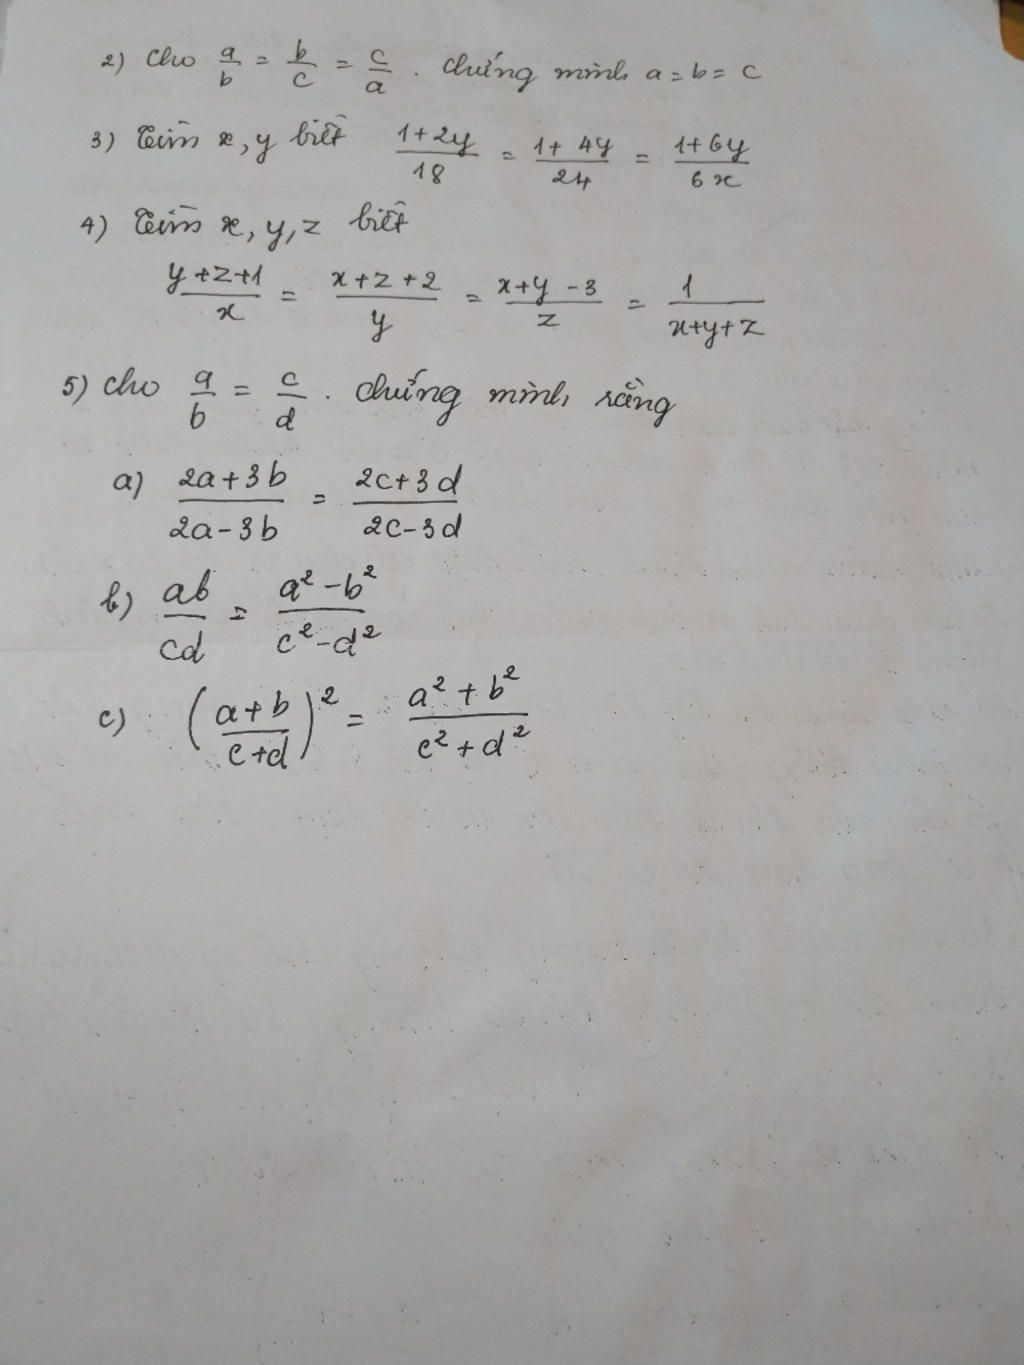 2) Cho a/b = b/c = c/a . Chứng minh a = b = c
3) Tìm x, y biết (1+2y)/18 = (1+4y)/24 = (1+6y)/6x
4) Tìm x, y, z biết
(y+z+1)/x = (x+z+2)/y = (x+y-3)/z = 1/(x+y+z)
5) Cho a/b = c/d . Chứng minh rằng
a) (2a+3b)/(2a-3b) = (2c+3d)/(2c-3d)
b) ab/cd = (a²-b²)/(c²-d²)
c) ((a+b)/(c+d))² = (a²+b²)/(c²+d²)